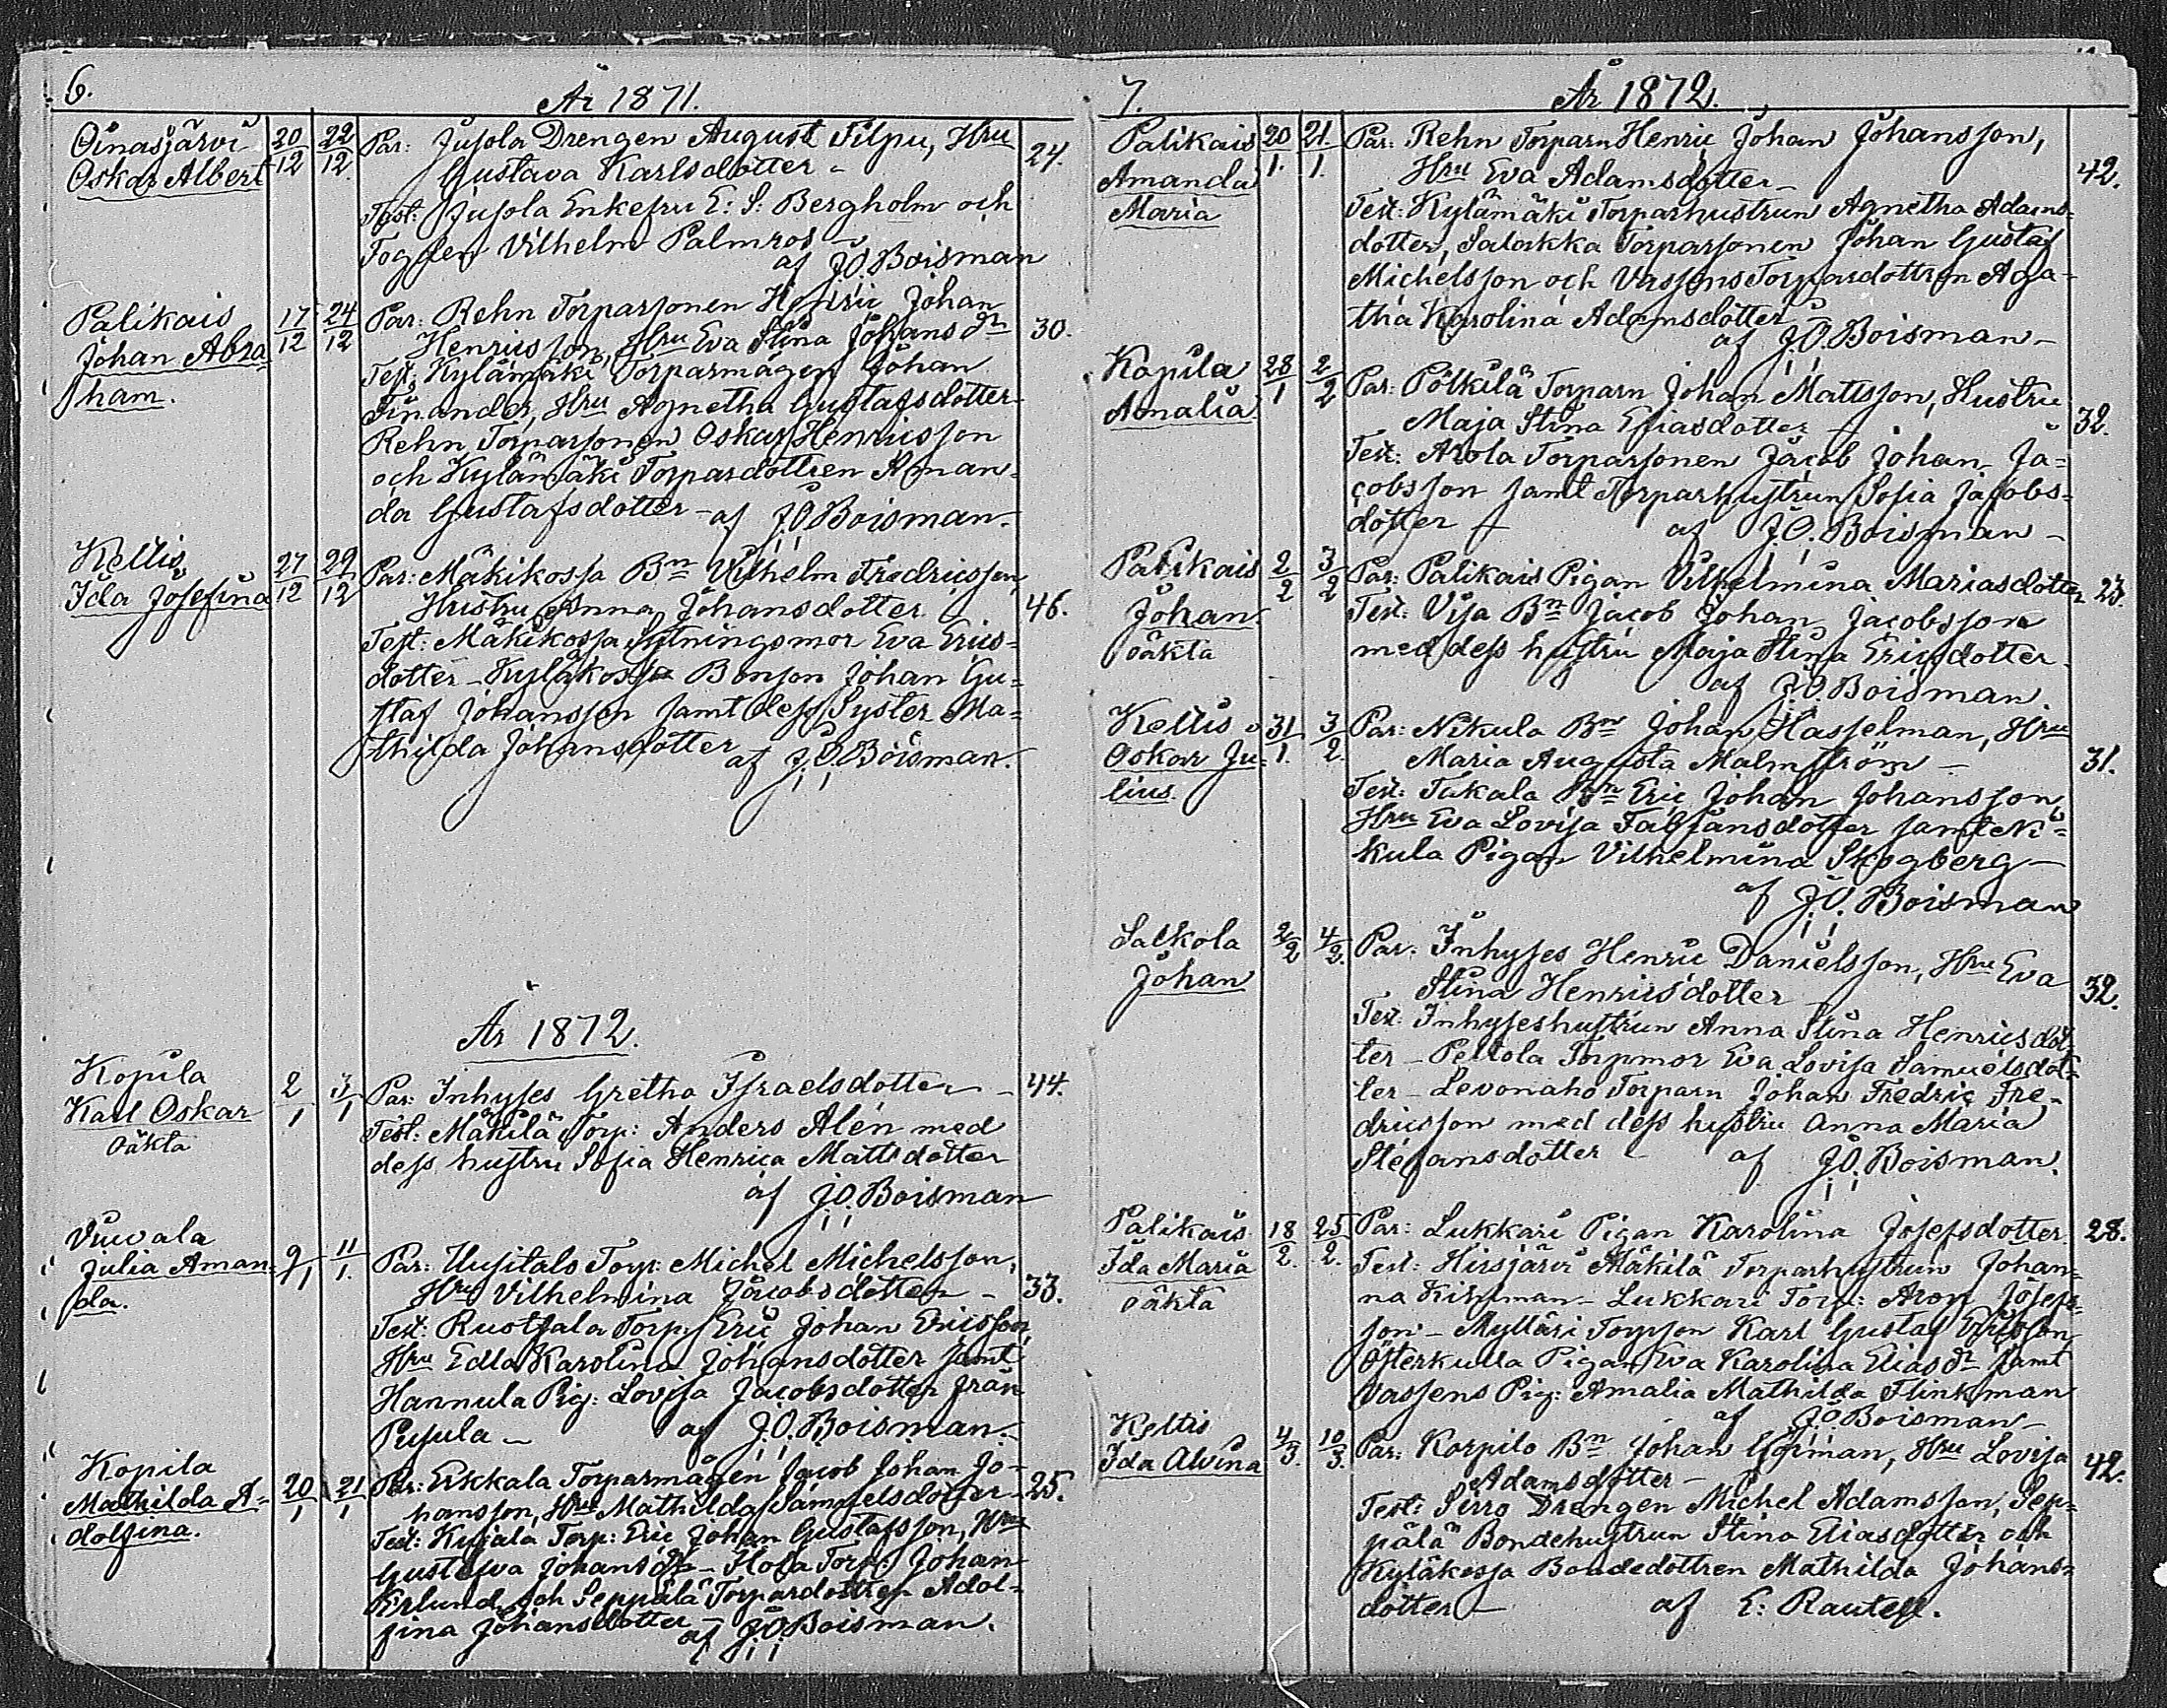 6.
År 1871.
Oinasjärvi 20/12 22/12. Par: Jusola Drengen August Filpu, Hru 24.
Oskar Albert Gustava Karlsdotter -
Test: Jusola Enkefru E: S: Bergholm och
Vilhelm Palmros -
af J.O. Boisman
Palikais 17/12 24/12 Par: Rehn Torparsonen Henric Johan 30.
Johan Abra Henricsson, Hru Eva Stina Johansdr
ham. Test: Kylämäki Torparmågen Johan
Finander, Hru Agnetha Gustafsdotter
Rehn Torparsonen Oskar Henricsson
och Kylämäki Torpardottren Aman-
da Gustafsdotter - af J.O. Boisman.
Keltis 27/12 29/12 Par: Mäkikossa Bn Vilhelm Fredricsson,
Ida Josefina Hustru Anna Johansdotter 46.
Test: Mäkikossa Sytningsmor Eva Erics-
dotter - Kyläkossa Bonson Johan Gu-
staf Johansson samt dess Syster Ma-
thilda Johansdotter af J.O. Boisman.
År 1872.
Kopila 2/1 3/1 Par: Inhyses Gretha Israelsdotter - 44.
Karl Oskar Test: Mäkilä Torp: Anders Alén med
oäkta dess hustru Sofia Henrica Mattsdotter
af J.O. Boisman
Vuvala
Julia Aman- 9/1 11/1. Par: Uusitalo Torp: Michel Michelsson,
da. Hru Vilhelmina Jacobsdotter - 33.
Test: Ruotsala Torp: Eric Johan Ericsson,
Hru Edla Karolina Johansdotter samt
Hannula Pig: Lovisa Jacobsdotter från
Pusula - af J.O. Boisman.
Kopila 20/1 21/1 Par: Erkkala Torparmågen Jacob Johan Jo-
Mathilda A- hansson, Hru Mathilda Samuelsdotter - 25.
dolfina. Test: Kujala Torp: Eric Johan Gustafsson, Hru
Gustafva Johansdr - Hola Torp: Johan
Erlund och Seppälä Torpardottren Adol-
fina Johansdotter - af J.O. Boisman.
7.
År 1872.
Palikais 20/1. 21./1. Par: Rehn Torparn Henric Johan Johansson,
Amanda Hru Eva Adamsdotter - 42.
Maria Test: Kylämäki Torparhustrun Agnetha Adams-
dotter, Salakka Torparsonen Johan Gustaf
Michelsson och Torpardottren Aga-
tha Karolina Adamsdotter
af J.O. Boisman -
Kopila 28/1 2/2 Par: Pölkilä Torparn Johan Mattsson, Hustru
Amalia Maja Stina Esiasdotter - 32.
Test: Arola Torparsonen Jacob Johan Ja-
cobsson samt Torparhustrun Sofia Jacobs-
dotter - af J.O. Boisman -
Palikais 2/2 3/2 Par: Palikais Pigan Vilhelmina Mariasdotter 23.
Johan Test: Bn Jacob Johan Jacobsson
oäkta med dess hustru Maja Stina Ericsdotter.
af J.O. Boisman.
Keltis 31/1. 3/2. Par: Nikula Bn Johan Hasselman, Hru
Oskar Ju- Maria Augusta Malmström - 31.
lius. Test: Takala Bn Eric Johan Johansson,
Hru Eva Lovisa Fabiansdotter samt Ni-
kula Pigan Vilhelmina Skogberg -
af J.O. Boisman
Salkola 2/2 4/2. Par: Inhyses Henric Danielsson, Hru Eva
Johan Stina Henricsdotter 32.
Test: Inhyseshustrun Anna Stina Henricsdot-
ter - Peltola Torpmor Eva Lovisa Samuelsdot-
ter - Levonaho Torparn Johan Fredric Fre-
dricsson med dess hustru Anna Maria
Stefansdotter - af J.O. Boisman.
Palikais 18/2. 25/2. Par: Lukkari Pigan Karolina Josefsdotter. 28.
Ida Maria Test: Hirsjärvi Mäkilä Torparhustrun Johan-
oäkta na - Lukkari Torp: Aron Josefs-
son - Mylläri Torpson Karl Gustaf Ericsson
Österkulla Pigan Eva Karolina Eliasdr samt
Vassens Pig: Amalia Mathilda Flinkman
af J.O. Boisman -
Keltis 4/3. 10/3. Par: Korpilo Bn Johan Göpman, Hru Lovisa
Ida Alvina Adamsdotter - 42.
Test: Sirro Drengen Michel Adamsson, Sep-
pälä Bondehustrun Stina Eliasdotter och
Kyläkossa Bondedottren Mathilda Johans-
dotter - af E: Rautell.